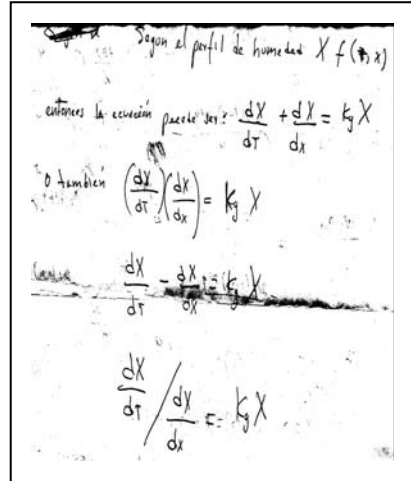 Segun el perfil de humedad X f(T, x)
entonces la ecuación puede ser: dX/dT + dX/dx = kg X
O también (dX/dT)(dX/dx) = kg X
dX/dT - dX/dx = kg X
dX/dT / dX/dx = kg X